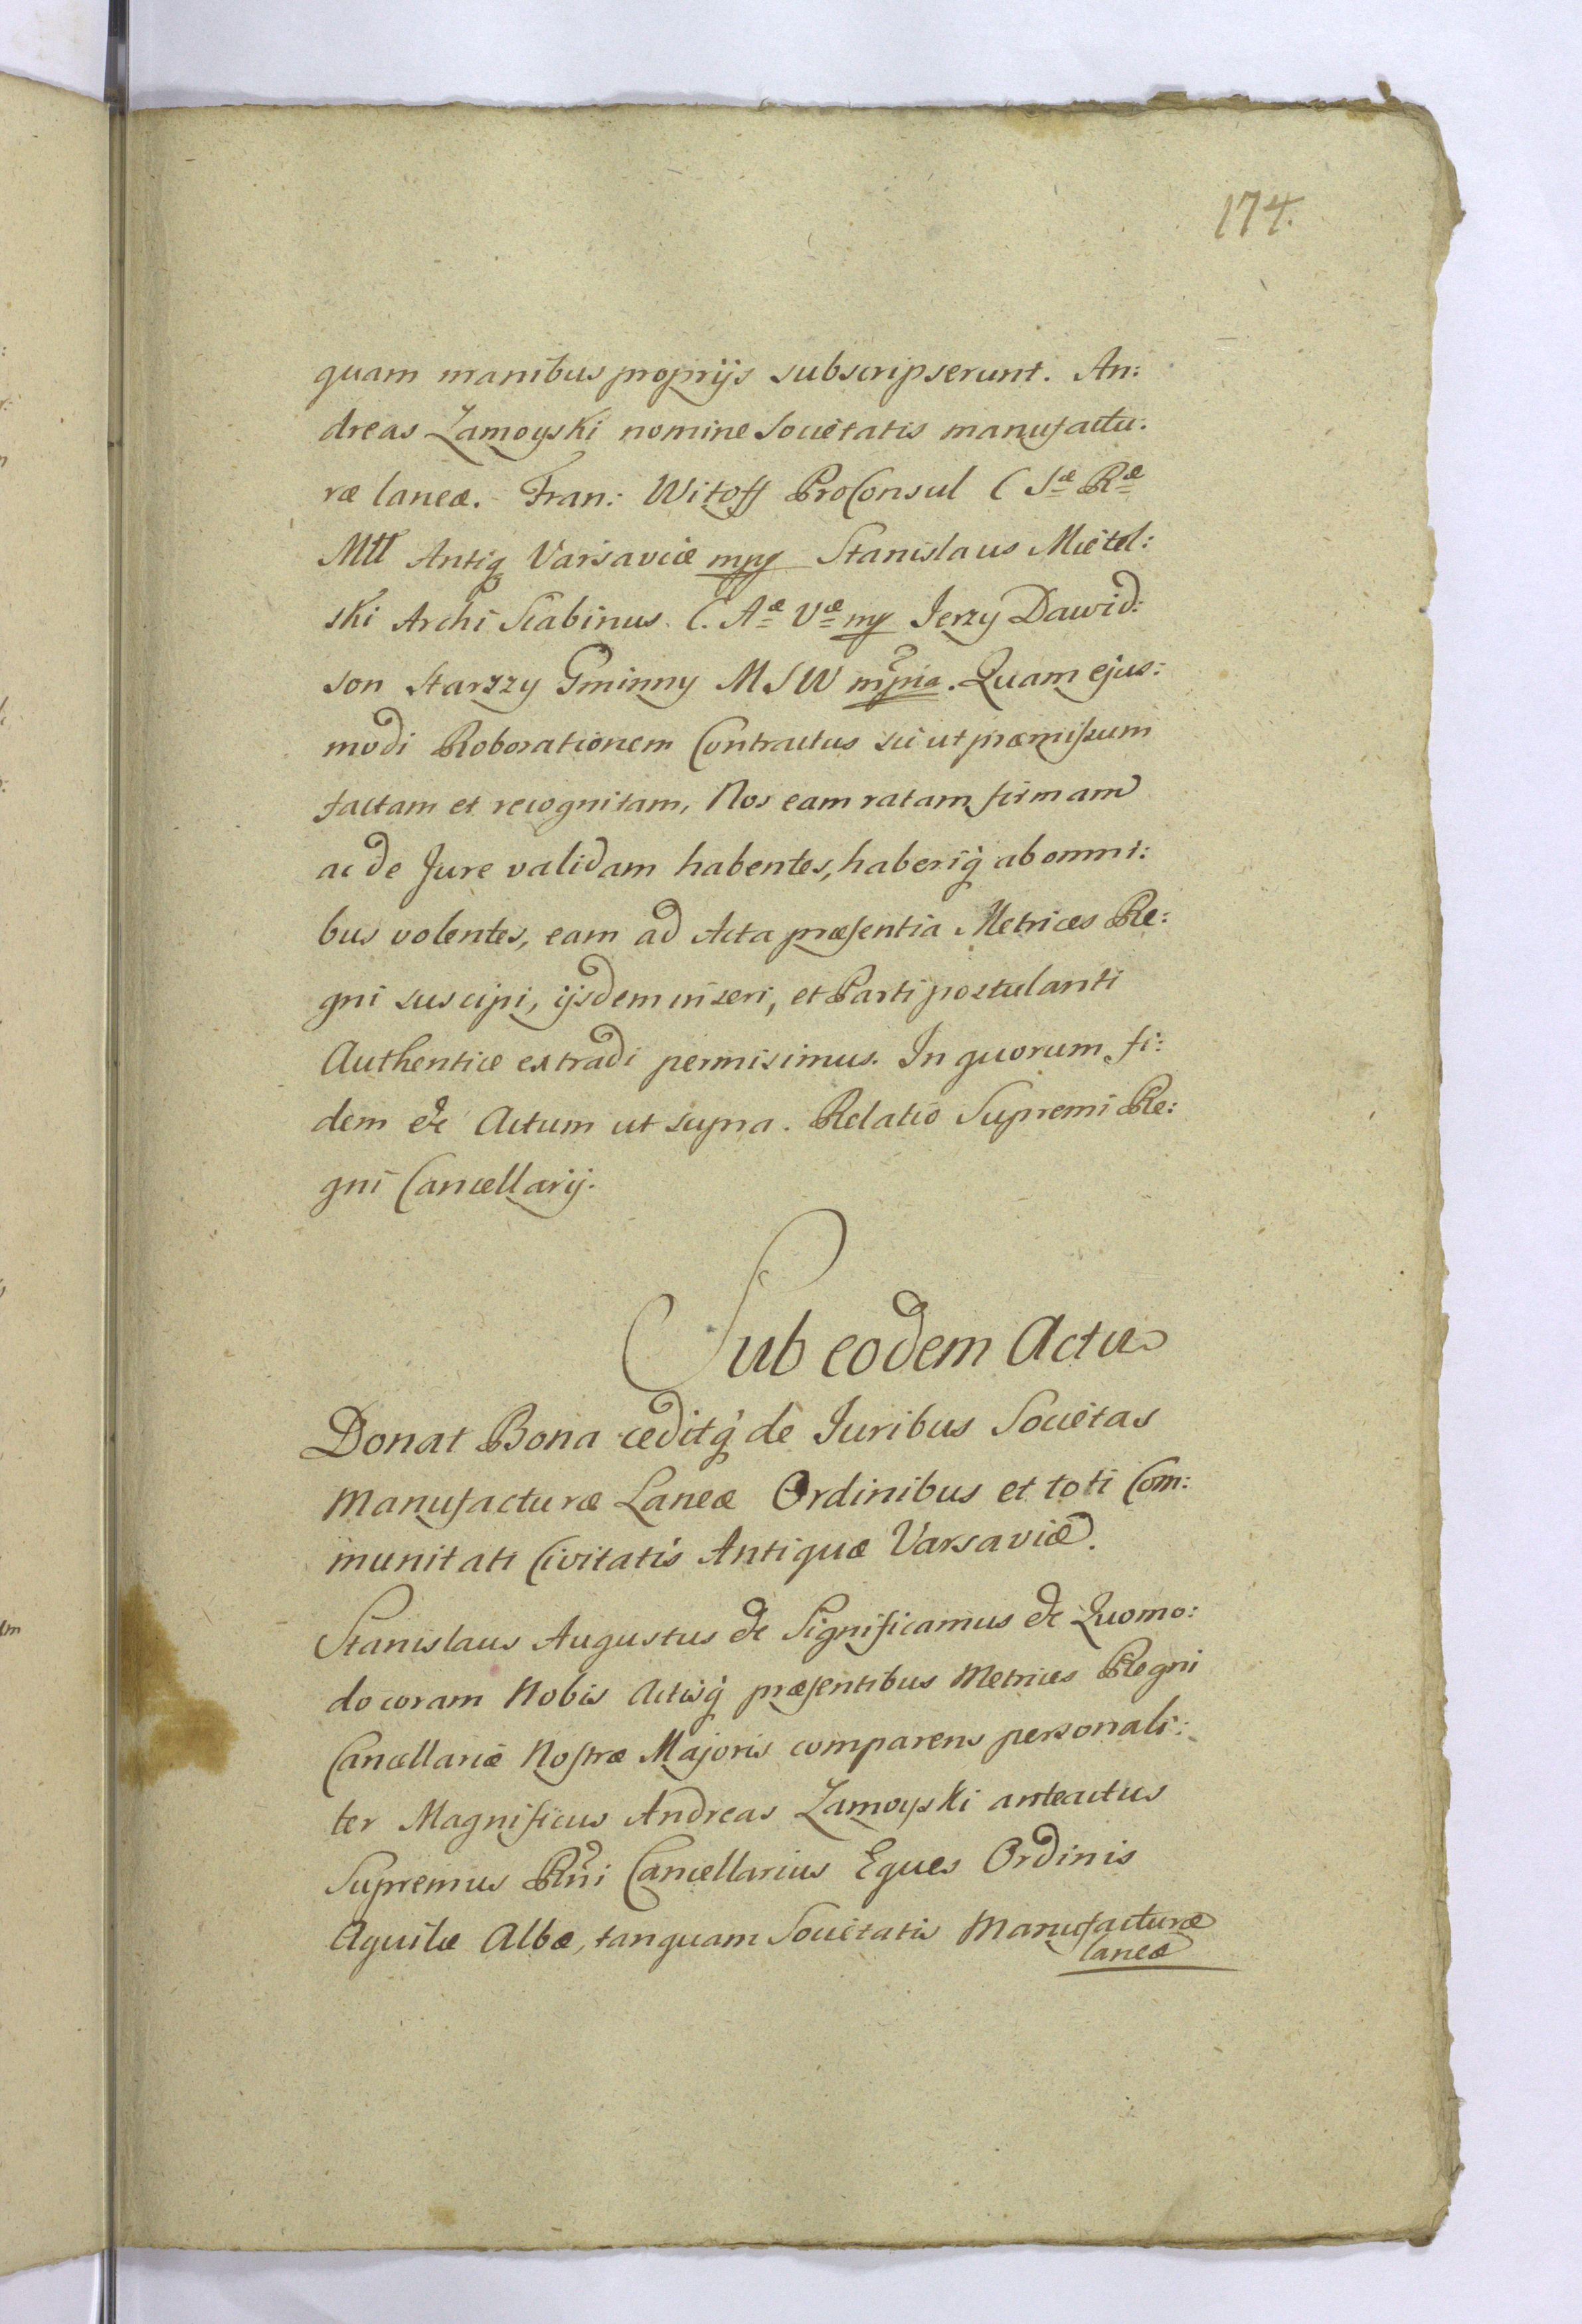 174.
quam manibus proprijs subscripserunt. An:
dreas Zamoyski nomine Societatis manufactu:
ræ laneæ. Fran: Witoff ProConsul C Sæ Ræ
Mtt Antiq Varsaviæ mpp Stanislaus Mietel:
ski Archi Scabinus. C. Aæ Væ mp Jerzy Dawid:
son Starszy Gminny M S W mpria. Quam ejus:
modi Roborationem Contractus sic ut præmissum
factam et recognitam, Nos eam ratam firmam
ac de Jure validam habentes, haberiq ab omni:
bus volentes, eam ad Acta præsentia Metrices Re:
gni suscipi, ijsdem inseri, et Parti postulanti
Authentice extradi permisimus. In quorum fi:
dem &c Actum ut supra. Relatio Supremi Re:
gni Cancellarij.
Sub eodem Actu
Donat Bona ceditq de Juribus Societas
Manufacturæ Laneæ Ordinibus et toti Com:
munitati Civitatis Antiquæ Varsaviæ.
Stanislaus Augustus &c Significamus &c Quomo:
do coram Nobis Actisq præsentibus Metrices Regni
Cancellariæ Nostræ Majoris comparens personali:
ter Magnificus Andreas Zamoyski anteactus
Supremus Rni Cancellarius Eques Ordinis
Aquilæ Albæ, tanquam Societatis Manufacturæ
laneæ